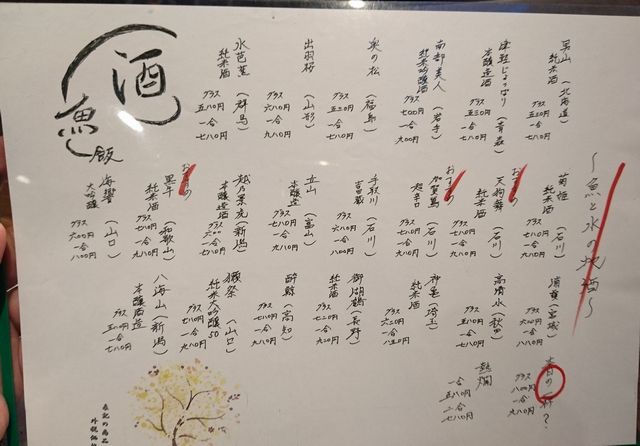 〜魚と水の地酒〜
男山（北海道）
純米酒
グラス 五八〇円
一合 七八〇円
津軽じょっぱり（青森）
本醸造酒
グラス 五三〇円
一合 七八〇円
南部美人（岩手）
純米吟醸酒
グラス 七〇〇円
一合 九〇〇円
栄の松（福島）
グラス 五三〇円
一合 七八〇円
出羽桜（山形）
グラス 六八〇円
一合 九八〇円
水芭蕉（群馬）
純米酒
グラス 五八〇円
一合 七八〇円
酒
魚
飯
菊姫（石川）
純米酒
グラス 七八〇円
一合 九八〇円
おすすめ
天狗舞（石川）
純米酒
グラス 七八〇円
一合 九八〇円
おすすめ
加賀鳶（石川）
超辛口
グラス 五八〇円
一合 七八〇円
手取川（石川）
吉田蔵
グラス 五八〇円
一合 七八〇円
立山（富山）
本醸造
グラス 五八〇円
一合 七八〇円
越乃景虎（新潟）
本醸造酒
グラス 六〇〇円
一合 七八〇円
おすすめ
黒牛（和歌山）
純米酒
グラス 七八〇円
一合 九八〇円
海響（山口）
大吟醸
グラス 六〇〇円
一合 八〇〇円
浦霞（宮城）
グラス 六〇〇円
一合 八〇〇円
高清水（秋田）
グラス 五八〇円
一合 七八〇円
神亀（埼玉）
純米酒
グラス 六二〇円
一合 八二〇円
御湖鶴（長野）
純米酒
グラス 七二〇円
一合 九二〇円
酔鯨（高知）
グラス 五八〇円
一合 七八〇円
獺祭（山口）
純米大吟醸50
グラス 七八〇円
一合 九八〇円
八海山（新潟）
本醸造
グラス 五八〇円
一合 七八〇円
春の一杯？
グラス 八〇〇円
一合 九八〇円
熱燗
一合 五八〇円
二合 七八〇円
表記の商品